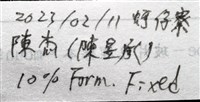 2023/02/11 蚵仔寮
陳?(陳昱?)
10% Form. Fixed